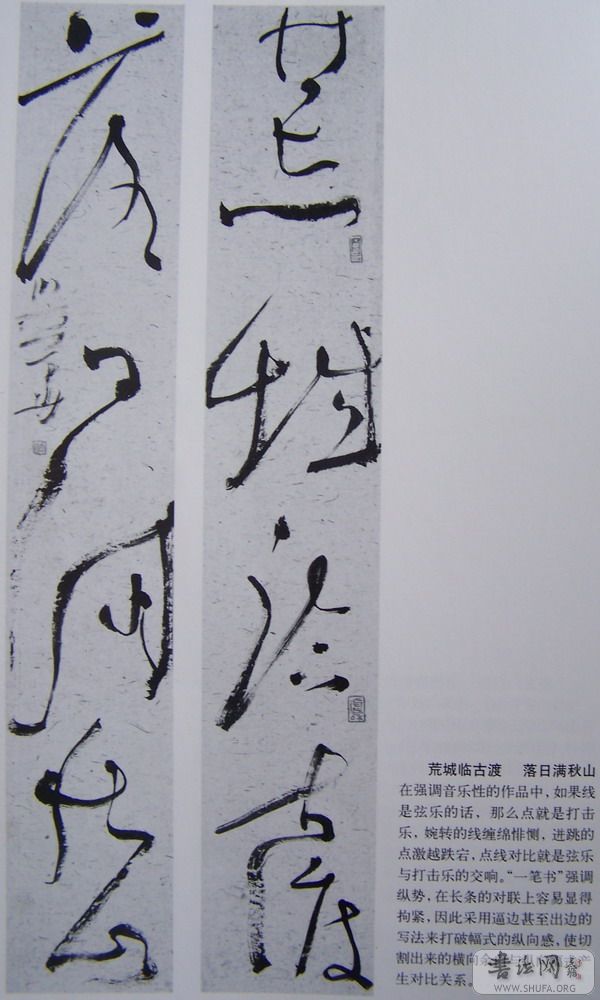 荒城临古渡
落日满秋山
荒城临古渡 落日满秋山
在强调音乐性的作品中,如果线
是弦乐的话,那么点就是打击
乐,婉转的线缠绵悱恻,迸跳的
点激越跌宕,点线对比就是弦乐
与打击乐的交响。“一笔书”强调
纵势,在长条的对联上容易显得
拘紧,因此采用逼边甚至出边的
写法来打破幅式的纵向感,使切
割出来的横向
生对比关系。
书法网
WWW.SHUFA.ORG